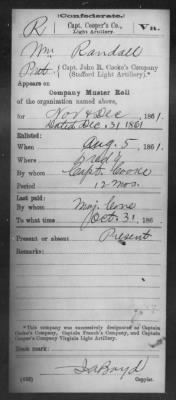 (Confederate.)
R | Capt. Cooper's Co., Light Artillery. | Va.
Wm Randall
Pvt., Capt. John R. Cooke's Company
(Stafford Light Artillery).*
Appears on
Company Muster Roll
of the organization named above,
for Nov & Dec, 1861.
Dated Dec. 31 1861
Enlisted:
When Aug. 5, 1861.
Where
By whom Capt. Cooke
Period 12 mos.
Last paid:
By whom Maj. Cone
To what time Oct. 31, 1861.
Present or absent Present
Remarks:
*This company was successively designated as Captain
Cooke's Company, Captain French's Company, and Captain
Cooper's Company Virginia Light Artillery.
Book mark:
Boyd
(642) Copyist.